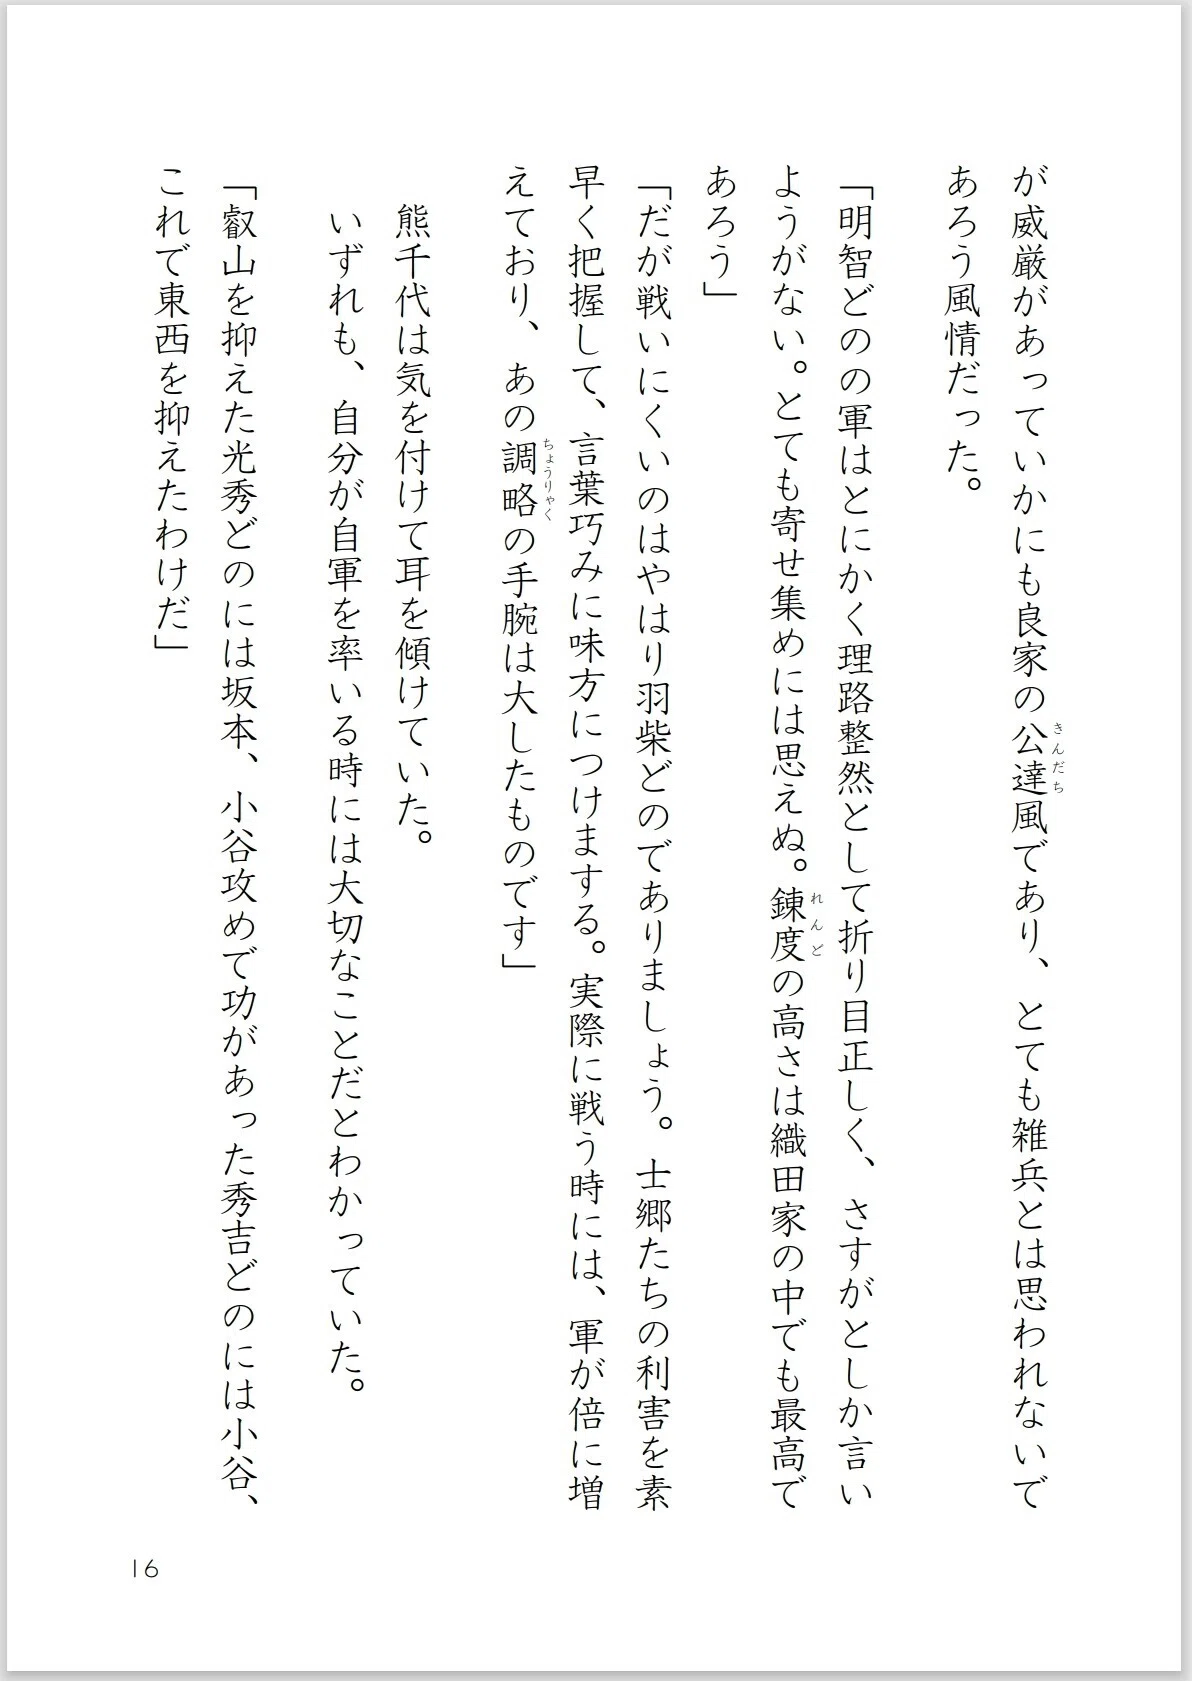 が威厳があっていかにも良家の公達風であり、とても雑兵とは思われないで
きんだち
あろう風情だった。
「明智どのの軍はとにかく理路整然として折り目正しく、さすがとしか言い
ようがない。とても寄せ集めには思えぬ。錬度の高さは織田家の中でも最高で
れんど
あろう」
「だが戦いにくいのはやはり羽柴どのでありましょう。士郷たちの利害を素
早く把握して、言葉巧みに味方につけまする。実際に戦う時には、軍が倍に増
えており、あの調略の手腕は大したものです」
ちょうりゃく
熊千代は気を付けて耳を傾けていた。
いずれも、自分が自軍を率いる時には大切なことだとわかっていた。
「叡山を抑えた光秀どのには坂本、小谷攻めで功があった秀吉どのには小谷、
これで東西を抑えたわけだ」
16